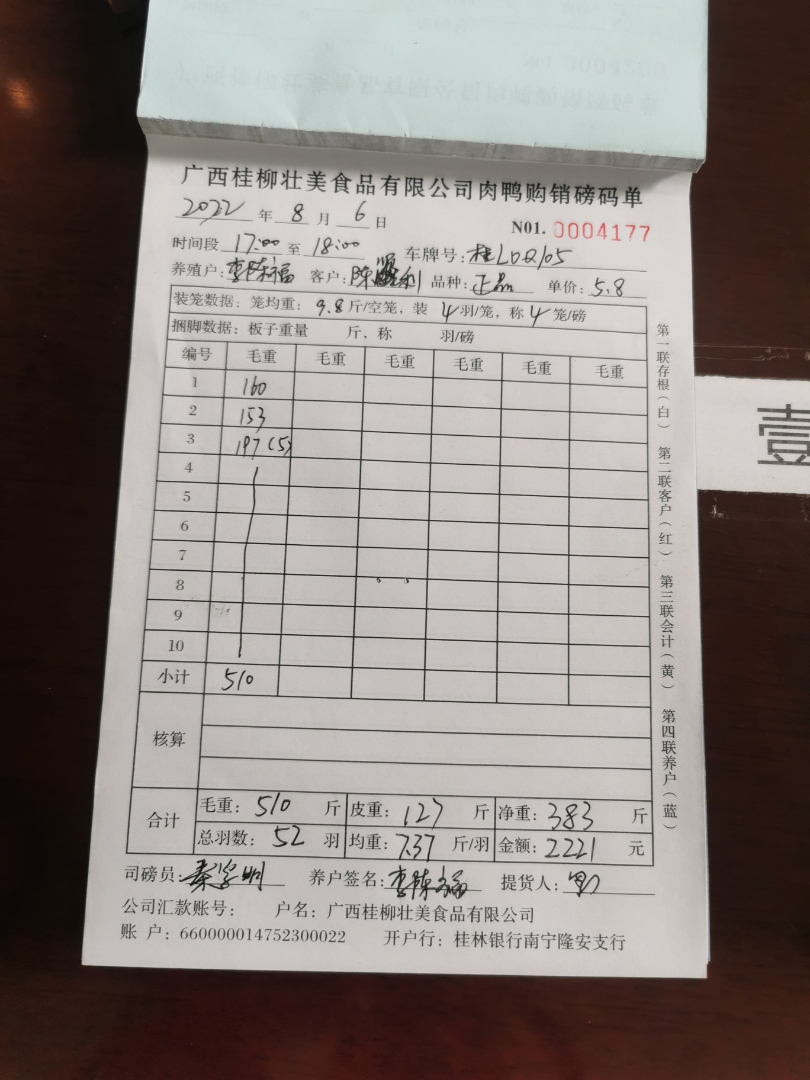 广西桂柳壮美食品有限公司肉鸭购销磅码单
2022 年 8 月 6 日 N01. 0004177
时间段 17:00 至 18:00 车牌号: 桂LDQ105
养殖户: 李陈福 客户: 陈 利 品种: 正品 单价: 5.8
装笼数据: 笼均重: 9.8 斤/空笼, 装 4 羽/笼, 称 4 笼/磅
捆脚数据: 板子重量 斤, 称 羽/磅
编号 毛重 毛重 毛重 毛重 毛重 毛重
1 160
2 153
3 197(5)
4
5
6
7
8
9
10
小计 510
核算
合计 毛重: 510 斤 皮重: 127 斤 净重: 383 斤
总羽数: 52 羽 均重: 7.37 斤/羽 金额: 2221 元
司磅员: 秦学明 养户签名: 李陈福 提货人:
公司汇款账号: 户名: 广西桂柳壮美食品有限公司
账 户: 660000014752300022 开户行: 桂林银行南宁隆安支行
第一联存根(白) 第二联客户(红) 第三联会计(黄) 第四联养户(蓝)
壹